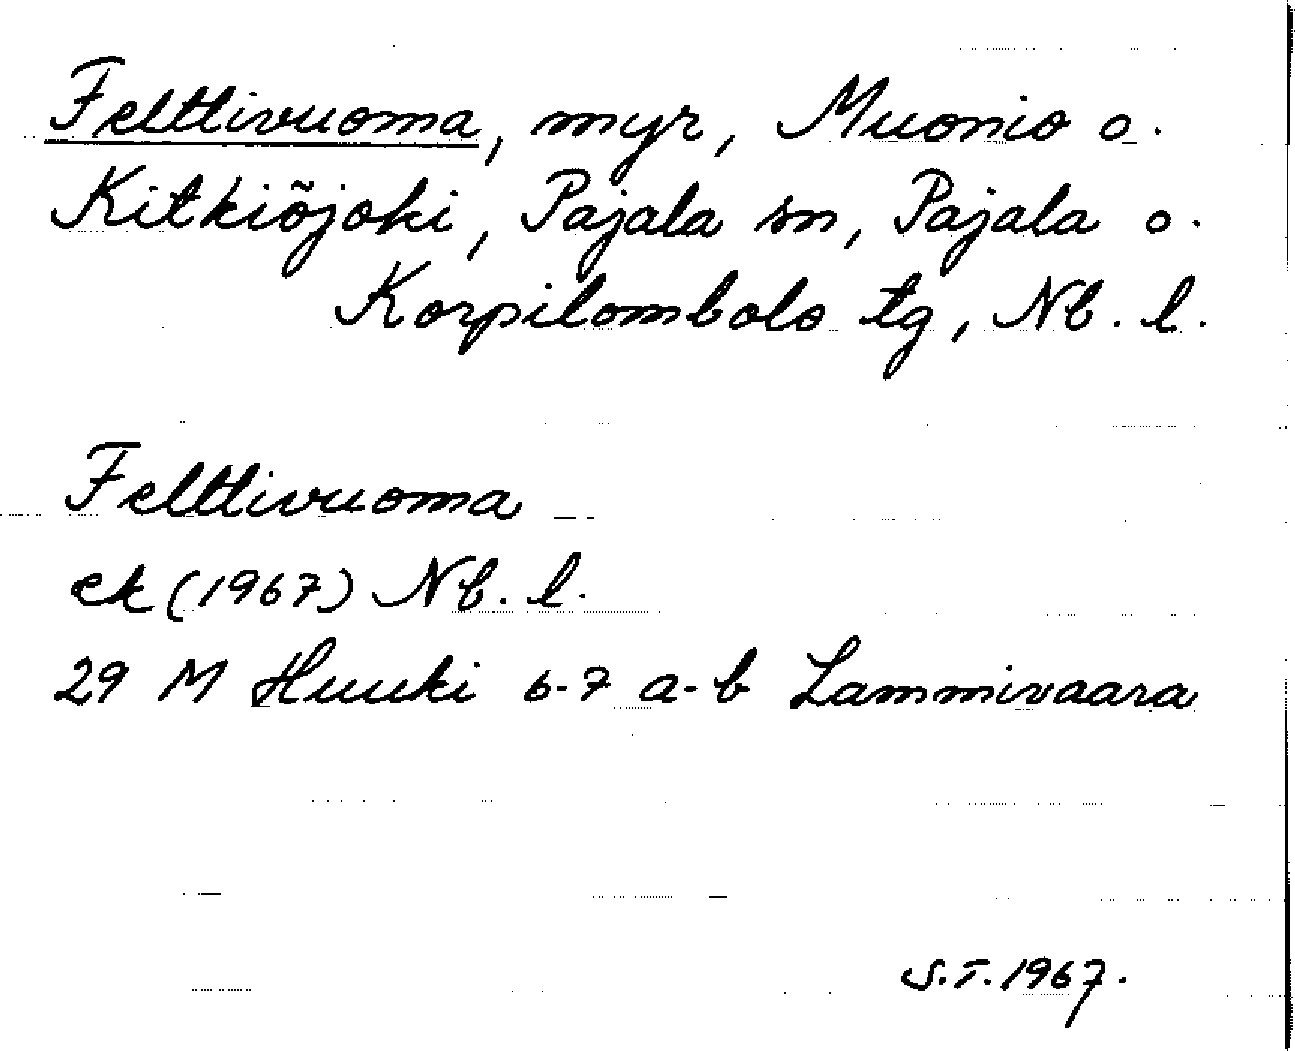 Felttivuoma, myr, Muonio o.
Kitkiõjoki, Pajala sn, Pajala o.
Korpilombolo tg, Nb. l.
Felttivuoma
ek (1967) Nb. l.
29 M Huuki 6-7 a-b Lammivaara
S.T. 1967.